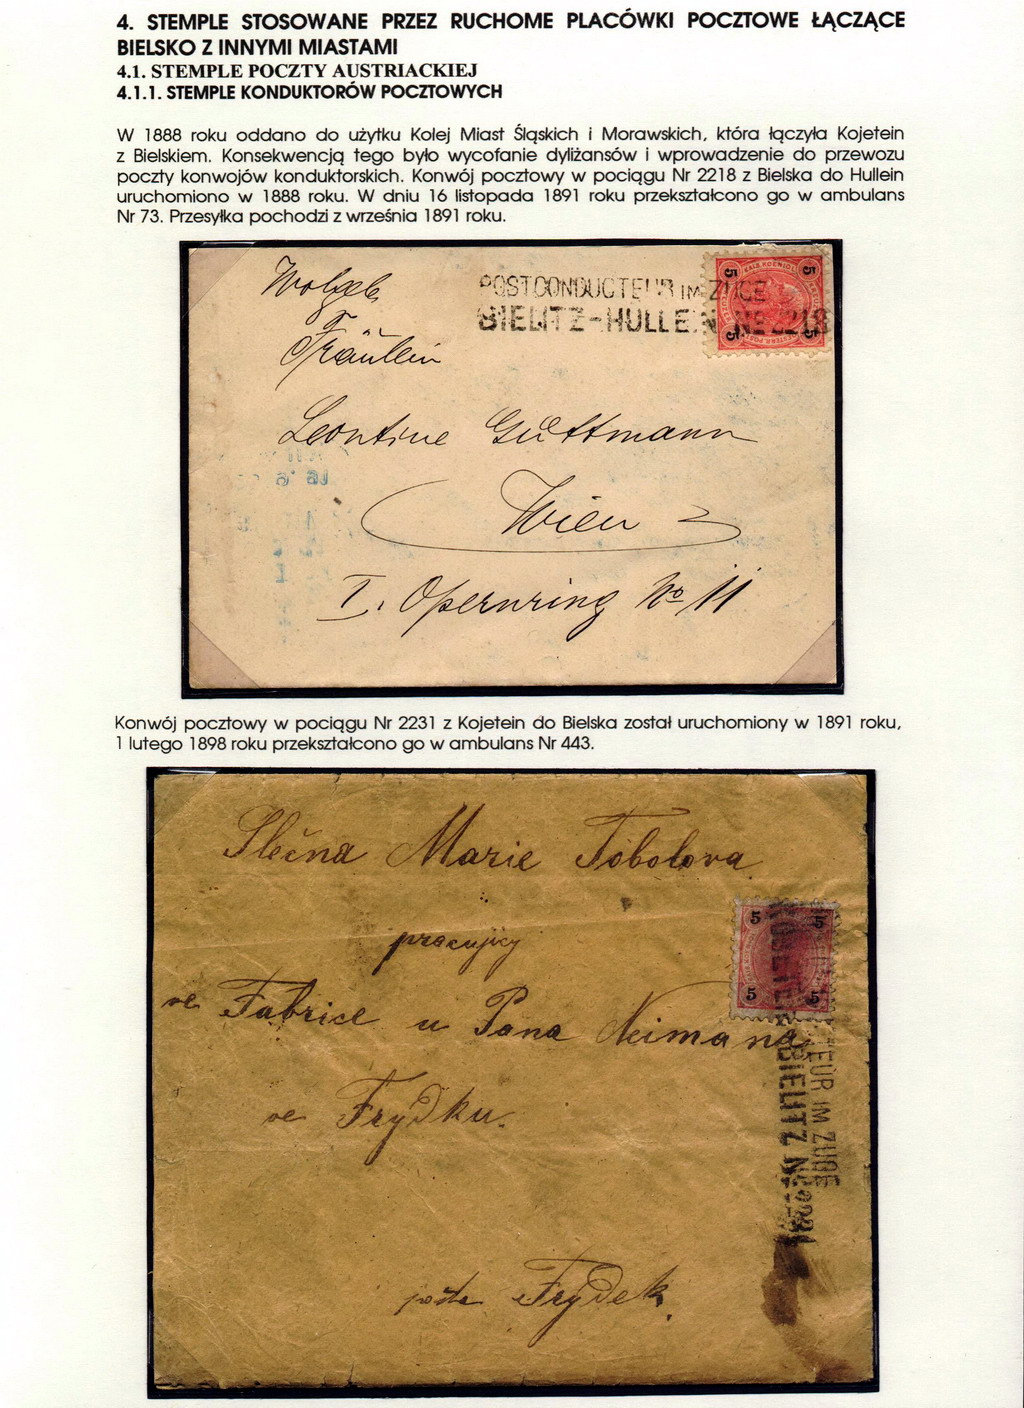 4. STEMPLE STOSOWANE PRZEZ RUCHOME PLACÓWKI POCZTOWE ŁĄCZĄCE
BIELSKO Z INNYMI MIASTAMI
4.1. STEMPLE POCZTY AUSTRIACKIEJ
4.1.1. STEMPLE KONDUKTORÓW POCZTOWYCH
W 1888 roku oddano do użytku Kolej Miast Śląskich i Morawskich, która łączyła Kojetein
z Bielskiem. Konsekwencją tego było wycofanie dyliżansów i wprowadzenie do przewozu
poczty konwojów konduktorskich. Konwój pocztowy w pociągu Nr 2218 z Bielska do Hullein
uruchomiono w 1888 roku. W dniu 16 listopada 1891 roku przekształcono go w ambulans
Nr 73. Przesyłka pochodzi z września 1891 roku.
POSTCONDUCTEUR IM ZUGE
BIELITZ-HULLEIN Nº 2218
5 5
5 5
Wolgeb
Fräulein
Leontine Guttmann
Wien
I. Opernring Nº 11
Konwój pocztowy w pociągu Nr 2231 z Kojetein do Bielska został uruchomiony w 1891 roku,
1 lutego 1898 roku przekształcono go w ambulans Nr 443.
Slečna Marie Tobolova
pracujicy
ve Fabrice u Pana Neimana
ve Frydku.
pošta Frydek
5 5
5 5
TEUR IM ZUGE
KOJETEIN-BIELITZ Nº 2231